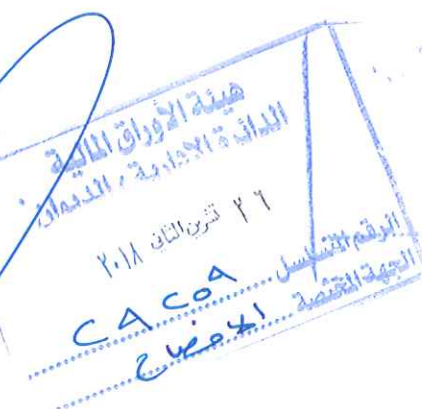 هيئة الأوراق المالية
الدائرة الإدارية / الديوان
٢٦ تشرين الثاني ٢٠١٨
الرقم المتسلسل
الجهة المختصة الافصاح